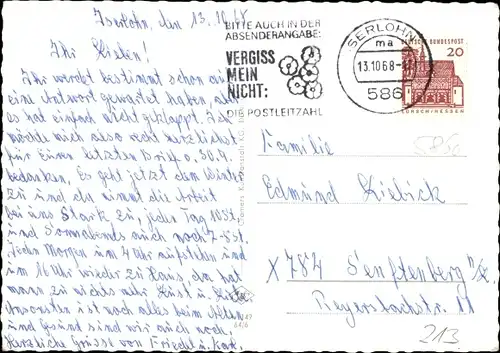 Iserlohn, den 13.10.68
Ihr Lieben!
Ihr werdet bestimmt schon auf
eine Antwort gewartet haben, aber
es hat einfach nicht geklappt. Ich
möchte mich also recht herzlichst
für Euren letzten Brief v. 30.9.
bedanken. Es geht jetzt dem Winter
zu und da nimmt die Arbeit
bei uns Stark zu, jeden Tag 10 St.
und Sonnabends auch noch 7-8 St.
Jeden Morgen um 4 Uhr aufstehen und
um Uhr wieder zu Haus, da hat
mann zu nichts mehr Lust u.
Ansonsten ist noch alles beim Alten
und gesund sind wir auch noch.
Herzliche Grüsse von Friedel u.
BITTE AUCH IN DER
ABSENDERANGABE:
VERGISS
MEIN
NICHT:
DIE POSTLEITZAHL
ISERLOHN
ma
13.10.68
586
DEUTSCHE BUNDESPOST
20
LORSCH/HESSEN
5860
Familie
Edmund Kielick
x 784 Senftenberg N/L
Reyersbachstr. 11
213